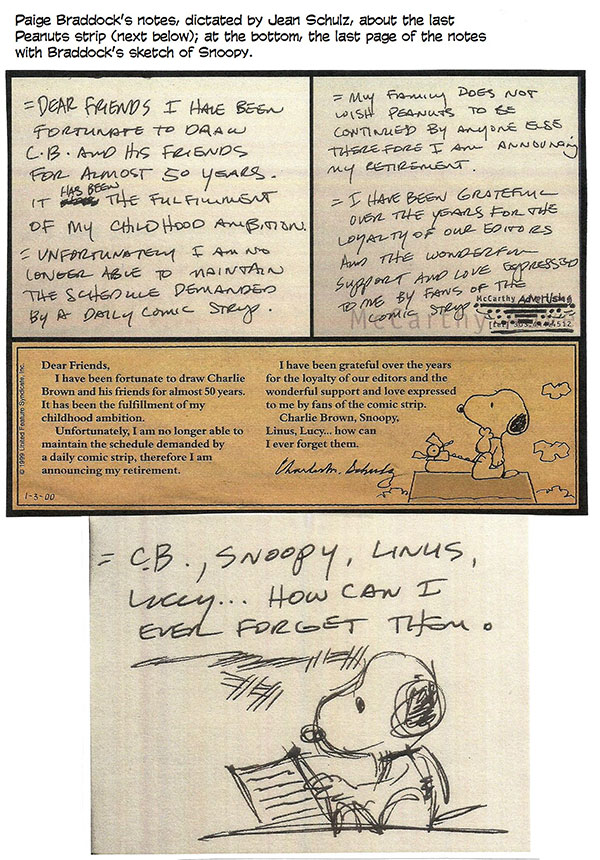 Paige Braddock's notes, dictated by Jean Schulz, about the last
Peanuts strip (next below); at the bottom, the last page of the notes
with Braddock's sketch of Snoopy.
= DEAR FRIENDS I HAVE BEEN
FORTUNATE TO DRAW
C.B. AND HIS FRIENDS
FOR ALMOST 50 YEARS.
HAS BEEN
IT THE FULFILLMENT
OF MY CHILDHOOD AMBITION.
= UNFORTUNATELY I AM NO
LONGER ABLE TO MAINTAIN
THE SCHEDULE DEMANDED
BY A DAILY COMIC STRIP.
= MY FAMILY DOES NOT
WISH PEANUTS TO BE
CONTINUED BY ANYONE ELSE
THEREFORE I AM ANNOUNCING
MY RETIREMENT.
= I HAVE BEEN GRATEFUL
OVER THE YEARS FOR THE
LOYALTY OF OUR EDITORS
AND THE WONDERFUL
SUPPORT AND LOVE EXPRESSED
TO ME BY FANS OF THE
COMIC STRIP
McCarthy Advertising
McCarthy
Dear Friends,
I have been fortunate to draw Charlie
Brown and his friends for almost 50 years.
It has been the fulfillment of my
childhood ambition.
Unfortunately, I am no longer able to
maintain the schedule demanded by
a daily comic strip, therefore I am
announcing my retirement.
I have been grateful over the years
for the loyalty of our editors and the
wonderful support and love expressed
to me by fans of the comic strip.
Charlie Brown, Snoopy,
Linus, Lucy... how can
I ever forget them.
Charles M. Schulz
© 1999 United Feature Syndicate, Inc.
1-3-00
= C.B., SNOOPY, LINUS,
LUCY... HOW CAN I
EVER FORGET THEM.